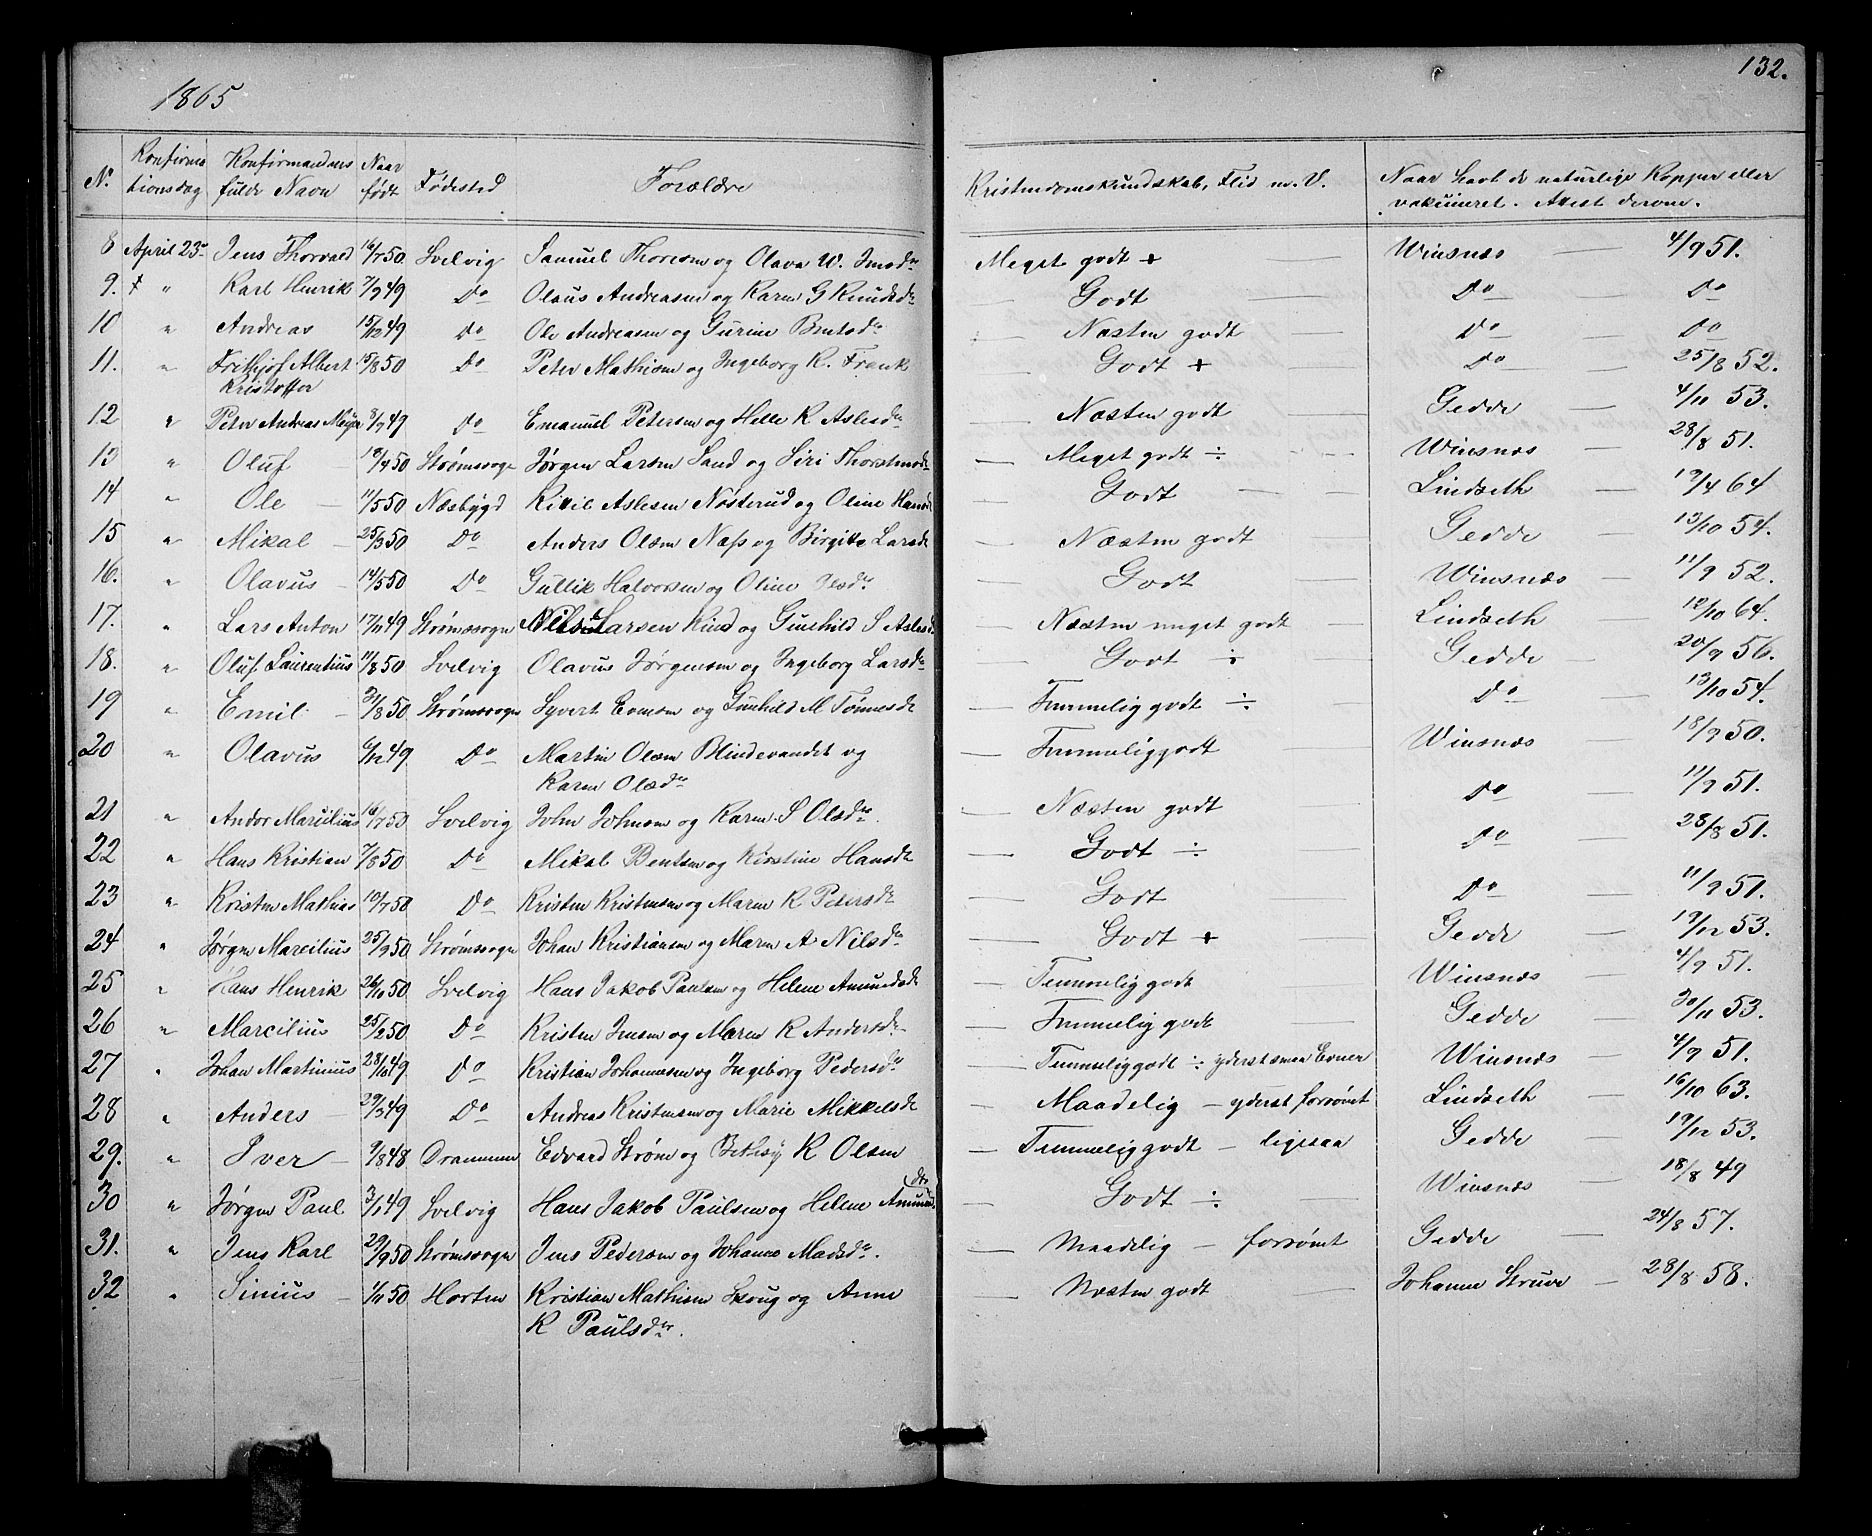 1865
132.
N. Konfirma tionsdag Konfirmandens fulde Navn Naar født Fødested Forældre Kristendomskundskab, Flid m. V. Naar havt de naturlige Kopper eller vakcineret. Attest derom.
8 April 23de Jens Thorvald 16/7 50 Svelvig Samuel Thoresen og Olava W. Jensdr Meget godt + Winsnæs — 4/9 51.
9. " Karl Henrik 7/9 49 Do Olaus Andreasen og Karen G Knudsdr — Godt — Do — Do
10 " Andreas 15/12 49 Do Ole Andreasen og Gurine Bentsdr — Næsten godt — Do — Do
11. " Frithjof Albert 15/8 50 Do Peter Mathisen og Ingeborg K. Frank — Godt + — Do — 25/8 52.
Kristoffer
12 " Peter Andreas Meyer 8/7 49 Do Emanuel Petersen og Helle K Aslesdr — Næsten godt — Gedde — 4/11 53.
13 " Oluf — 18/4 50 Strømssogn Jørgen Larsen Sand og Siri Thorstensdr — Meget godt ÷ — Winsnæs — 28/8 51.
14 " Ole — 11/5 50 Næsbygd Kittil Aslesen Nosterud og Oline Hansdr — Godt — Lindseth — 19/4 64
15 " Mikal — 25/3 50 Do Anders Olsen Næss og Birgitte Larsdr — Næsten godt Gedde — 13/10 54.
16. " Olavus — 14/5 50 Do Gullik Halvorsen og Oline Olsdr — Godt Winsnæs — 11/9 52.
17. " Lars Anton 17/11 49 Strømssogn Nils Larsen Kind og Gunhild S Aslesdr — Næsten meget godt — Lindseth — 12/10 64.
18. " Oluf Laurentius 11/8 50 Svelvig Olavus Jørgensen og Ingeborg Larsdr — Godt ÷ Gedde — 20/9 56.
19 " Emil — 31/8 50 Strømssogn Syvert Evensen og Gunhild M Tønnesdr — Temmelig godt ÷ — Do — 13/10 54.
20 " Olavus 6/12 49 Do Martin Olsen Blindevandet og — Temmelig godt — Winsnæs — 18/9 50.
Karen Olsdr
21 " Andor Marcilius 16/7 50 Svelvig John Johnsen og Karen S Olsdr. — Næsten godt — Do — 11/9 51.
22 " Hans Kristian 7/8 50 Do Mikal Bentsen og Kirstine Hansdr — Godt ÷ — Do — 28/8 51.
23 " Kristen Mathias 10/7 50 Do Kristen Kristensen og Maren K Petersdr — Godt — Do — 11/9 51.
24 " Jørgen Marcilius 25/9 50 Strømssogn Johan Kristiansen og Maren A. Nilsdr — Godt + Gedde — 19/12 53.
25 " Hans Henrik 26/10 50 Svelvig Hans Jakob Paulsen og Helene Amundsdr — Temmelig godt Winsnæs — 4/9 51.
26 " Marcilius 25/2 50 Do Kristen Jensen og Maren K Andersdr — Temmelig godt — Gedde — 30/11 53.
27 " Johan Martinius 28/10 49 Do Kristian Johannesen og Ingeborg Pedersdr — Temmelig godt ÷ yderst smaa Evner Winsnæs — 4/9 51.
28 " Anders — 29/3 49 Do Andreas Kristensen og Marie Mikkelsdr — Maadelig — yderst forsømt Lindseth — 16/10 63.
29. " Iver — 9/8 48 Drammen Edvard Strøm og Betsy K Olsen — Temmelig godt — ligesaa Gedde — 19/12 53.
30 " Jørgen Paul 3/1 49 Svelvig Hans Jakob Paulsen og Helene Amundsdr — Godt ÷ — Winsnæs — 18/8 49
31. " Jens Karl 29/9 50 Strømssogn Jens Pedersen og Johanne Madsdr. — Maadelig — forsømt Gedde — 24/8 57.
32 " Sinius — 1/11 50 Horten Kristian Mathisen Skoug og Anne — Næsten godt — Johanne Struve — 28/8 58.
K Paulsdr.